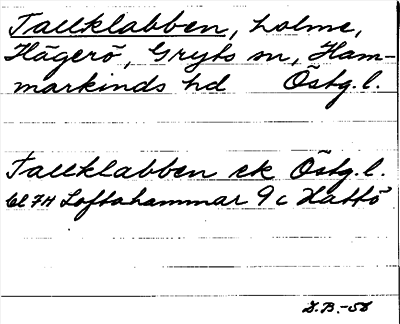 Tallklabben, holme,
Hägerö, Gryts sn, Ham-
markinds hd Östg. l.
Tallklabben ek Östg. l.
Bl 7H Loftahammar 9 c Hattö
S.B.-56